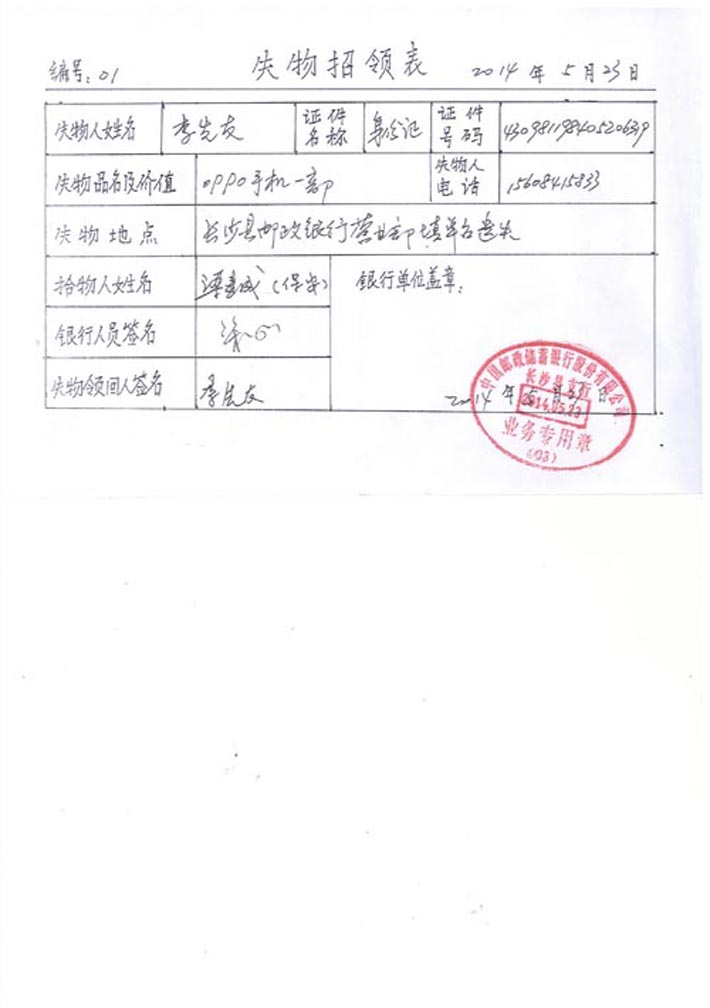 编号:01 失物招领表 2014年5月23日
失物人姓名 李先友 证件名称 身份证 证件号码 430981198405206319
失物品名及价值 OPPO手机一部 失物人电话 15608415833
失物地点 长沙县邮政银行营业部填单台遗失
拾物人姓名 (保安) 银行单位盖章:
银行人员签名
失物领回人签名 李先友 2014年5月23日
中国邮政储蓄银行股份有限公司
长沙县支行
2014.05.23
业务专用章
(03)